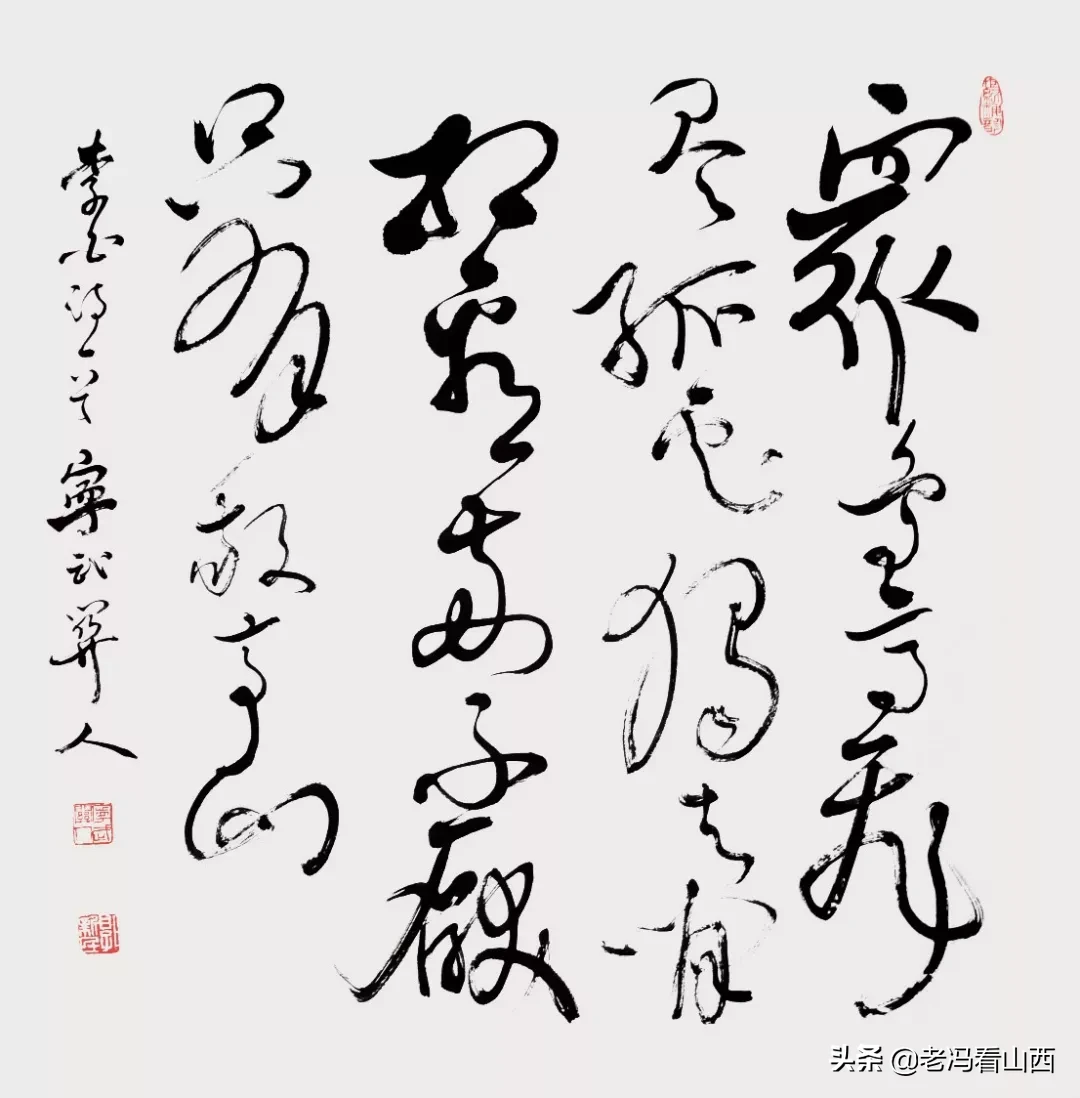 眾鸟高飛
尽孤云独去闲
相看兩不厭
只有敬亭山
李白诗一首 寧武關人
头条 @老冯看山西